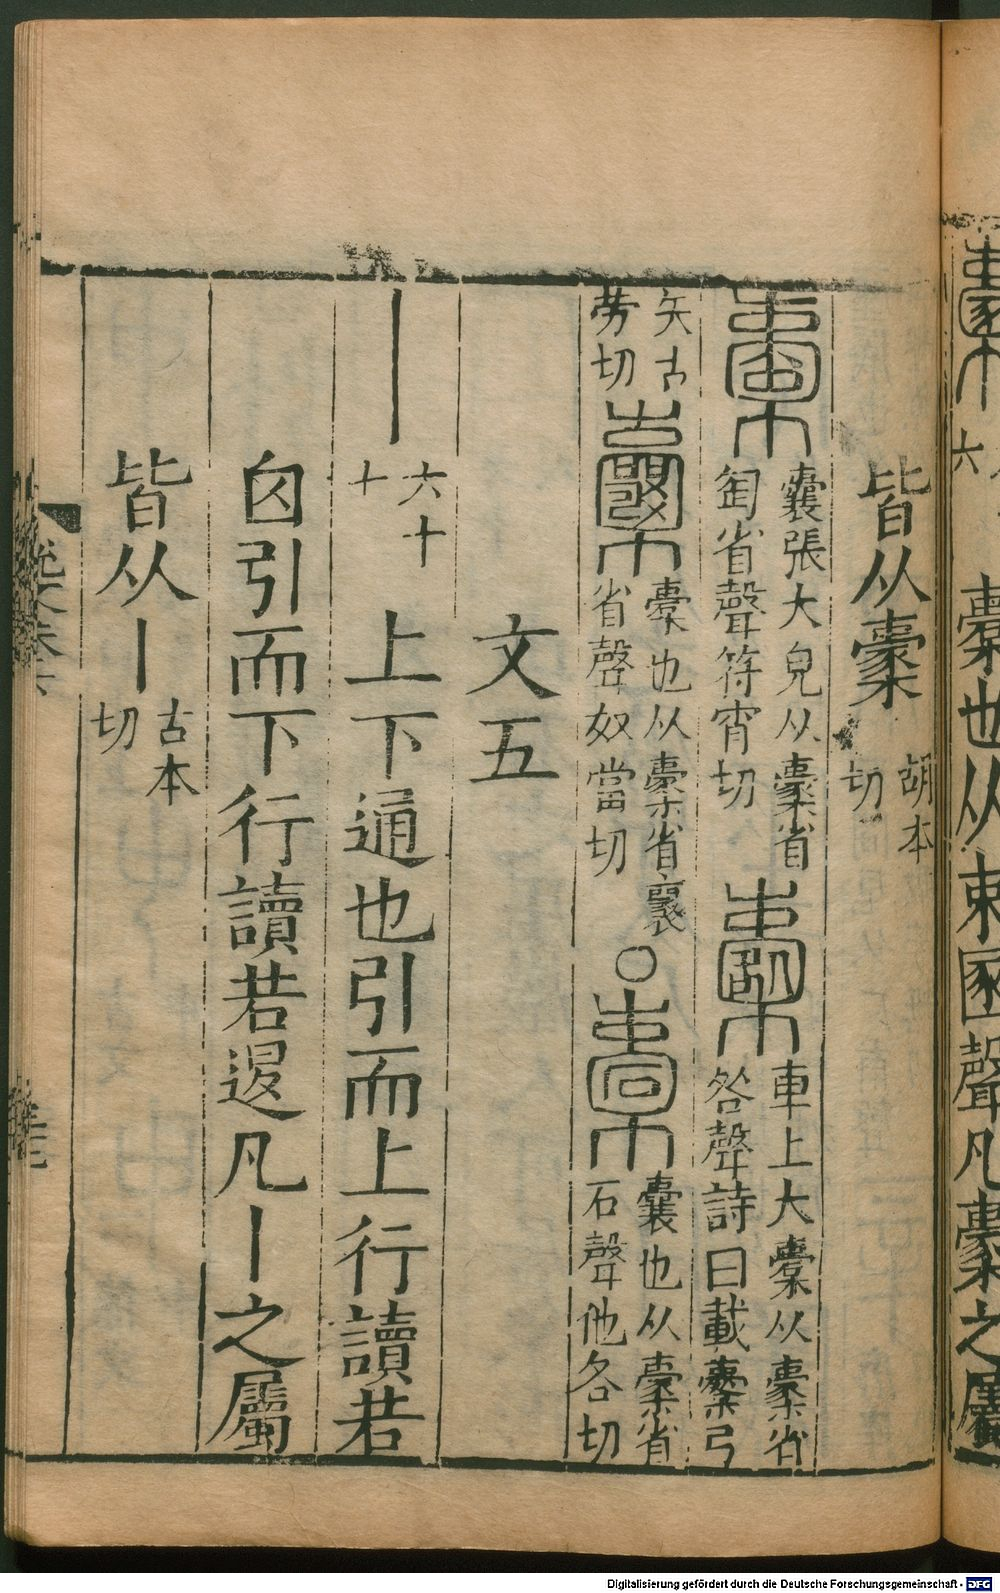 㯻也从束圂聲凡㯻之屬
皆从㯻胡本切
㯱囊張大皃从㯻省匋省聲符宵切櫜車上大橐从㯻省咎聲詩曰載櫜弓
矢古勞切囊橐也从㯻省襄省聲奴當切○橐囊也从㯻省石聲他各切
文五
丨六十十上下通也引而上行讀若
囟引而下行讀若𨓤凡丨之屬
皆从丨古本切
Digitalisierung gefördert durch die Deutsche Forschungsgemeinschaft - DFG